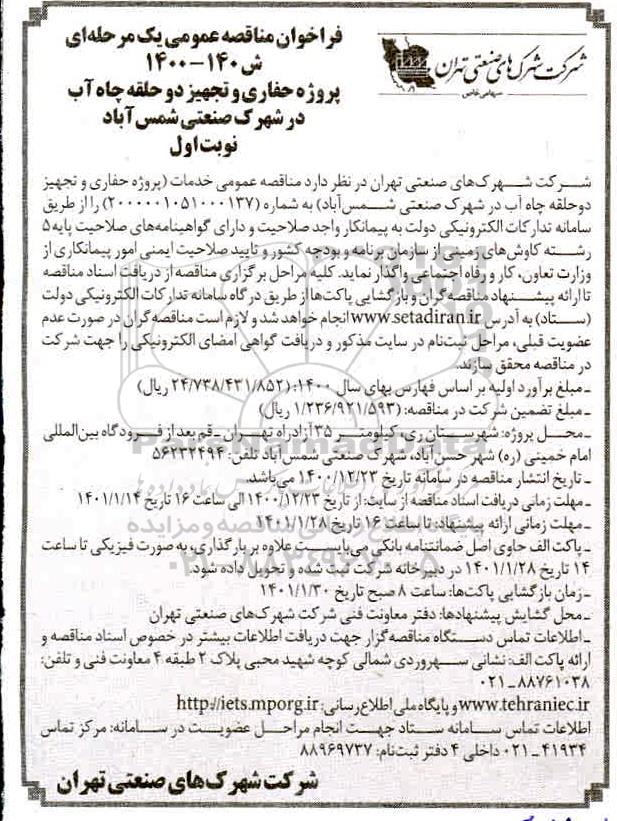 شرکت شهرک های صنعتی تهران
سهامی خاص
فراخوان مناقصه عمومی یک مرحله‌ای
ش ۱۴۰-۱۴۰۰
پروژه حفاری و تجهیز دو حلقه چاه آب
در شهرک صنعتی شمس آباد
نوبت اول
شرکت شهرک‌های صنعتی تهران در نظر دارد مناقصه عمومی خدمات (پروژه حفاری و تجهیز
دوحلقه چاه آب در شهرک صنعتی شمس‌آباد) به شماره (۲۰۰۰۰۰۱۰۵۱۰۰۰۱۳۷) را از طریق
سامانه تدارکات الکترونیکی دولت به پیمانکار واجد صلاحیت و دارای گواهینامه‌های صلاحیت پایه ۵
رشته کاوش‌های زمینی از سازمان برنامه و بودجه کشور و تایید صلاحیت ایمنی امور پیمانکاری از
وزارت تعاون، کار و رفاه اجتماعی واگذار نماید. کلیه مراحل برگزاری مناقصه از دریافت اسناد مناقصه
تا ارائه پیشنهاد مناقصه‌گران و بازگشایی پاکت‌ها از طریق درگاه سامانه تدارکات الکترونیکی دولت
(ستاد) به آدرس www.setadiran.ir انجام خواهد شد و لازم است مناقصه‌گران در صورت عدم
عضویت قبلی، مراحل ثبت‌نام در سایت مذکور و دریافت گواهی امضای الکترونیکی را جهت شرکت
در مناقصه محقق سازند.
ـ مبلغ برآورد اولیه بر اساس فهارس بهای سال ۱۴۰۰: (۲۴/۷۳۸/۴۳۱/۸۵۲ ریال)
ـ مبلغ تضمین شرکت در مناقصه: (۱/۲۳۶/۹۲۱/۵۹۳ ریال)
ـ محل پروژه: شهرستان ری، کیلومتر ۳۵ آزادراه تهران ـ قم بعد از فرودگاه بین‌المللی
امام خمینی (ره) شهر حسن آباد، شهرک صنعتی شمس آباد تلفن: ۵۶۲۳۲۴۹۴
ـ تاریخ انتشار مناقصه در سامانه تاریخ ۱۴۰۰/۱۲/۲۳ می‌باشد.
ـ مهلت زمانی دریافت اسناد مناقصه از سایت: از تاریخ ۱۴۰۰/۱۲/۲۳ الی ساعت ۱۶ تاریخ ۱۴۰۱/۱/۱۴
ـ مهلت زمانی ارائه پیشنهاد: تا ساعت ۱۶ تاریخ ۱۴۰۱/۱/۲۸
ـ پاکت الف حاوی اصل ضمانتنامه بانکی می‌بایست علاوه بر بارگذاری، به صورت فیزیکی تا ساعت
۱۴ تاریخ ۱۴۰۱/۱/۲۸ در دبیرخانه شرکت ثبت شده و تحویل داده شود.
ـ زمان بازگشایی پاکت‌ها: ساعت ۸ صبح تاریخ ۱۴۰۱/۱/۳۰
ـ محل گشایش پیشنهادها: دفتر معاونت فنی شرکت شهرک‌های صنعتی تهران
ـ اطلاعات تماس دستگاه مناقصه‌گزار جهت دریافت اطلاعات بیشتر در خصوص اسناد مناقصه و
ارائه پاکت الف: نشانی سهروردی شمالی کوچه شهید محبی پلاک ۲ طبقه ۴ معاونت فنی و تلفن:
۰۲۱ـ۸۸۷۶۱۰۳۸
www.tehraniec.ir و پایگاه ملی اطلاع رسانی: http://iets.mporg.ir
اطلاعات تماس سامانه ستاد جهت انجام مراحل عضویت در سامانه: مرکز تماس
۰۲۱ـ۴۱۹۳۴ داخلی ۴ دفتر ثبت‌نام: ۸۸۹۶۹۷۳۷
شرکت شهرک‌های صنعتی تهران